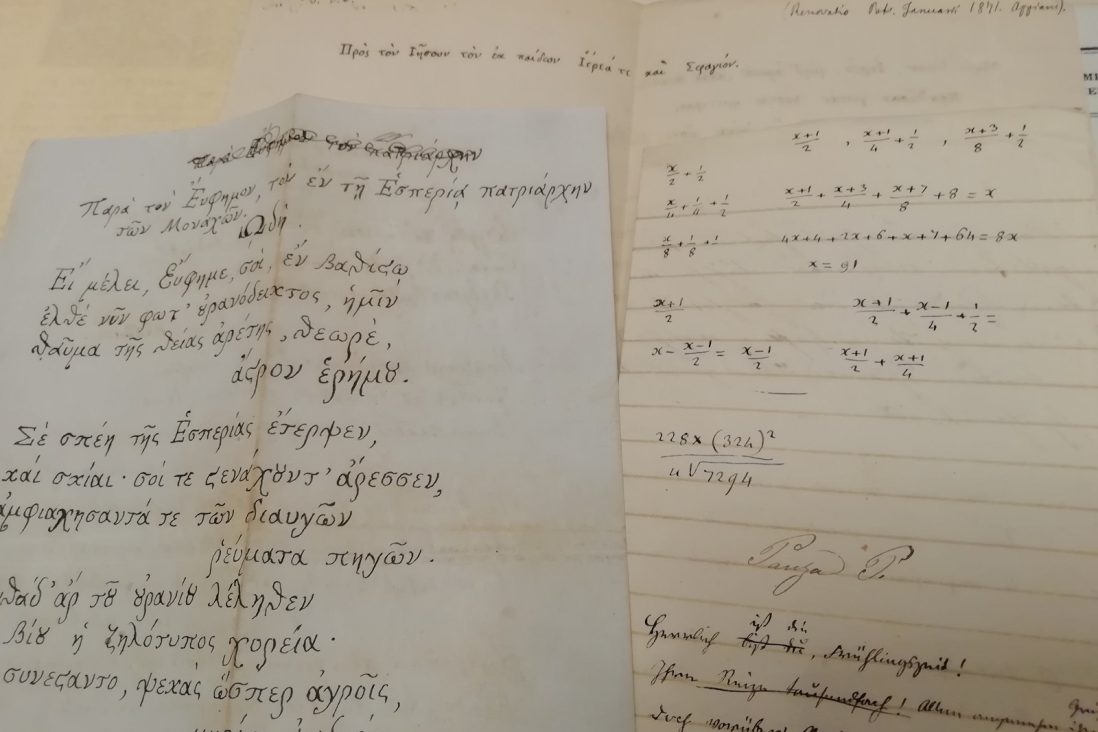 (Renovatio Januarii 1841.
Πρὸς τὸν Ἰῆσουν τὸν ἐκ παίδεων Ἱερέα τε καὶ Σφαγιόν.
Παρὰ τὸν Εὔφημον, τὸν ἐν τῇ Ἑσπερίᾳ πατριάρχην
τῶν Μοναχῶν.
Ὠδή.
Εἴ μέλει, Εὔφημε, σοί, ἐν βαθίστῳ
ἐλθέ νῦν φωτ' οὐρανόδεικτος, ἡμῖν
θαῦμα τῆς θείας ἀρέτης, θεωρὲ,
ἄστρον ἐρήμου.
Σέ σπέη τῆς Ἑσπερίας ἔτερψεν,
καί σκίαι· σοί τε στενάχουντ' ἄρεσσεν,
ἀμφιαχησαντά τε τῶν διαυγῶν
ῥεύματα πηγῶν.
ἄρ τοῦ οὐρανίου λέληθεν
βίου ἡ ζηλότυπος χορεία·
συνεσταντο, ψεκάς ὥσπερ ἀγροῖς,
x+1/2 , x+1/4 + 1/2 , x+3/8 + 1/2
x/2 + 1/2
x/4 + 1/4 + 1/2
x+1/2 + x+3/4 + x+7/8 + 8 = x
x/8 + 1/8 + 1
4x+4+2x+6+x+7+64=8x
x = 91
x+1/2
x+1/2 + x-1/4 + 1/2 =
x - x-1/2 = x-1/2
x+1/2 + x+1/4
228 x (324)²
4√7294
P.
ist die
Herrlich bist du, Frühlingszeit!
Ihre Reize tausendfach! Allem
doch